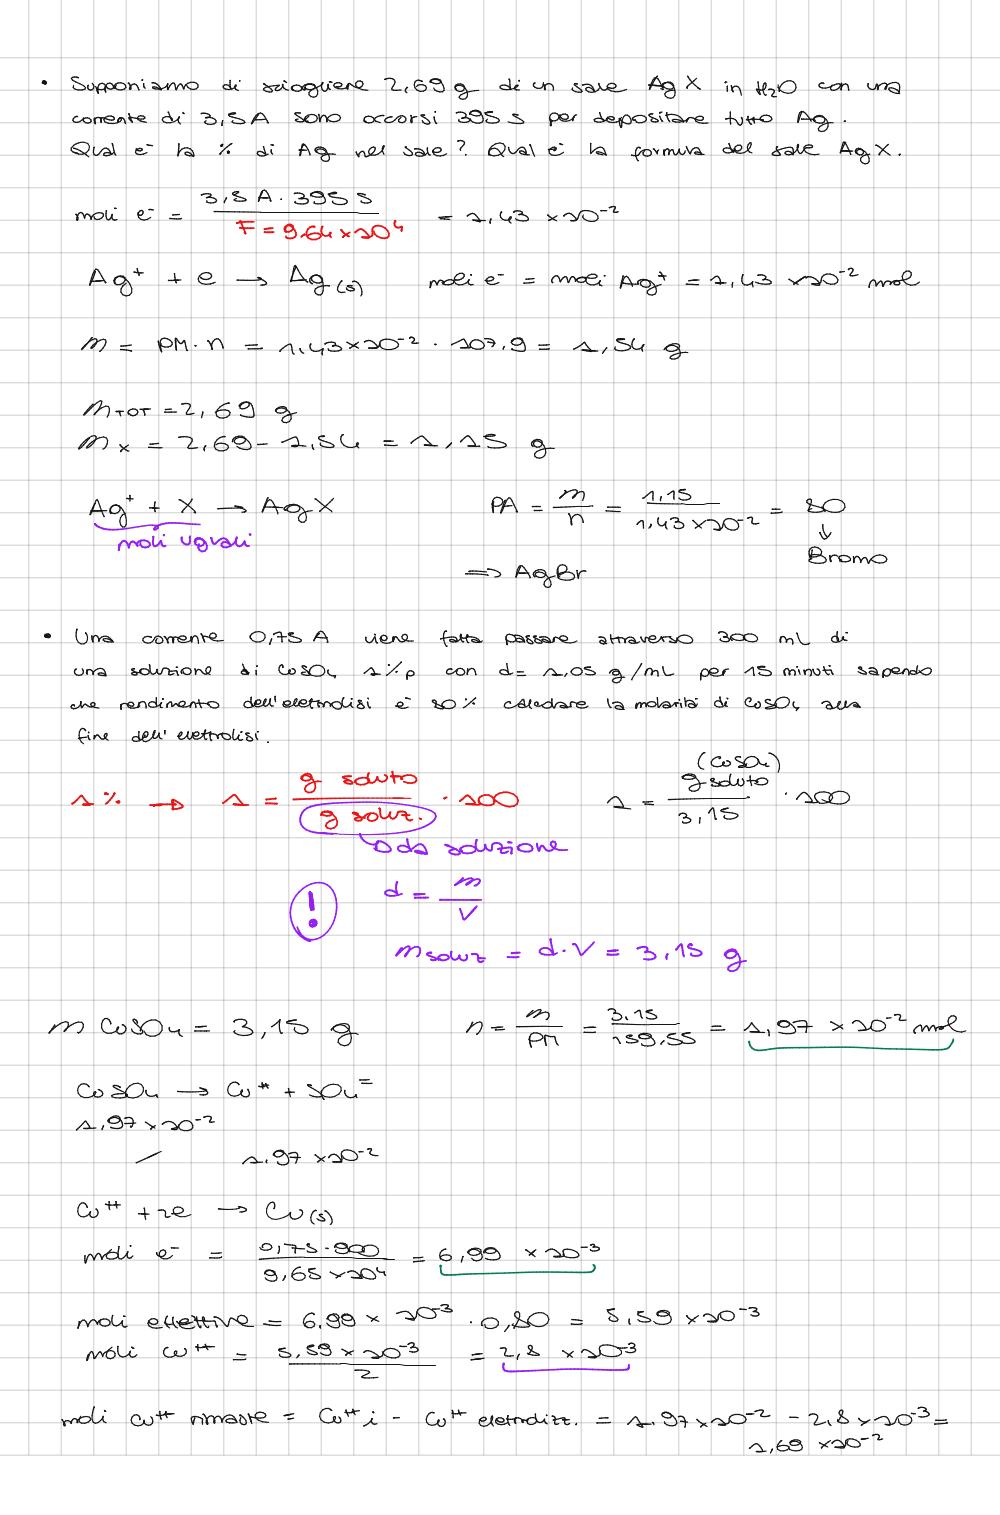 • Supponiamo di sciogliere 2,69 g di un sale AgX in H₂O con una
corrente di 3,5A sono occorsi 395 s per depositare tutto Ag.
Qual è la % di Ag nel sale? Qual è la formula del sale AgX.
moli e⁻ = 3,5 A · 395 s / F = 9.64 × 10⁴ = 1,43 × 10⁻²
Ag⁺ + e → Ag(s) moli e⁻ = moli Ag⁺ = 1,43 × 10⁻² mol
m = PM · n = 1,43 × 10⁻² · 107,9 = 1,54 g
mTOT = 2,69 g
mX = 2,69 - 1,54 = 1,15 g
Ag⁺ + X → AgX PA = m/n = 1,15 / 1,43 × 10⁻² = 80
moli uguali ↓
Bromo
=> AgBr
• Una corrente 0,75 A viene fatta passare attraverso 300 mL di
una soluzione di CuSO₄ 1%p con d= 1,05 g/mL per 15 minuti sapendo
che rendimento dell'elettrolisi è 80% calcolare la molarità di CuSO₄ alla
fine dell'elettrolisi.
(CuSO₄)
1% → 1 = g soluto / g soluz. · 100 1 = g soluto / 3,15 · 100
da soluzione
! d = m / V
m soluz = d · V = 3,15 g
m CuSO₄ = 3,15 g n = m / PM = 3.15 / 159.55 = 1,97 × 10⁻² mol
CuSO₄ → Cu⁺⁺ + SO₄⁼
1,97 × 10⁻²
/ 1.97 × 10⁻²
Cu⁺⁺ + 2e → Cu(s)
moli e⁻ = 0,75 · 900 / 9,65 × 10⁴ = 6,99 × 10⁻³
moli effettive = 6,99 × 10⁻³ · 0,80 = 5,59 × 10⁻³
moli Cu⁺⁺ = 5,59 × 10⁻³ / 2 = 2,8 × 10⁻³
moli Cu⁺⁺ rimaste = Cu⁺⁺i - Cu⁺⁺ elettrolizz. = 1.97 × 10⁻² - 2,8 × 10⁻³ =
1,69 × 10⁻²